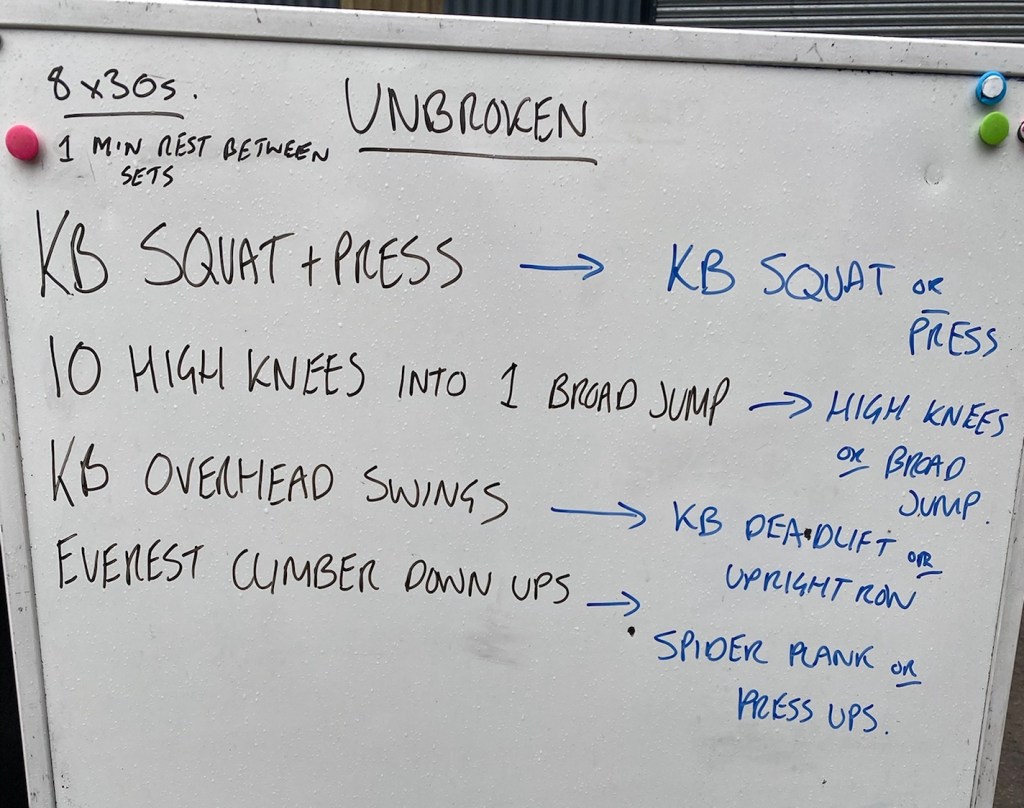 8 x 30s.
UNBROKEN
1 MIN REST BETWEEN
SETS
KB SQUAT + PRESS → KB SQUAT OR
PRESS
10 HIGH KNEES INTO 1 BROAD JUMP → HIGH KNEES
OR BROAD
JUMP.
KB OVERHEAD SWINGS → KB DEADLIFT OR
UPRIGHT ROW
EVEREST CLIMBER DOWN UPS → SPIDER PLANK OR
PRESS UPS.